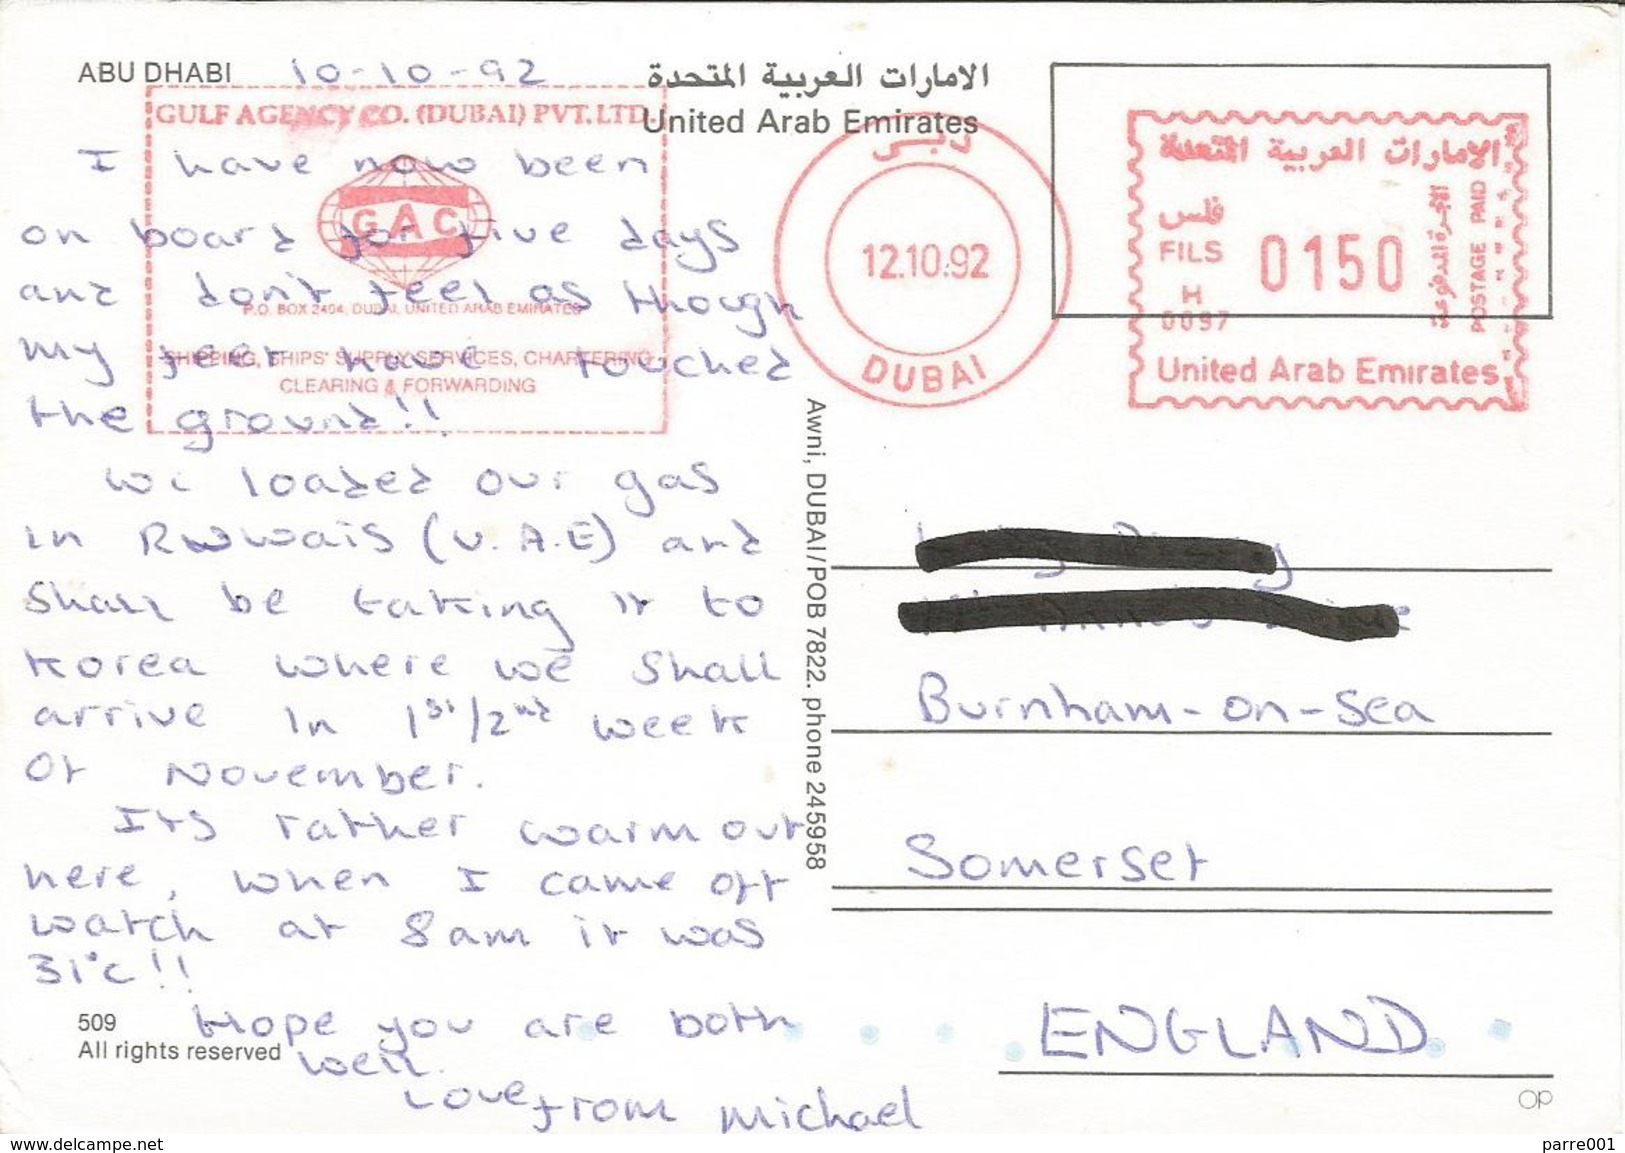 ABU DHABI 10-10-92
الامارات العربية المتحدة
United Arab Emirates
GULF AGENCY CO. (DUBAI) PVT. LTD.
GAC
P.O. BOX 2404, DUBAI, UNITED ARAB EMIRATES
SHIPPING, SHIPS' SUPPLY SERVICES, CHARTERING
CLEARING & FORWARDING
دبي
12.10.92
DUBAI
الامارات العربية المتحدة
فلس
FILS
0150
H
0097
اجرة البريد مدفوعة
POSTAGE PAID
United Arab Emirates
I have now been
on board for five days
and don't feel as though
my feet have touched
the ground!!
We loaded our gas
in Ruwais (U.A.E) and
shall be taking it to
Korea where we shall
arrive in 1st/2nd week
of November.
Its rather warm out
here, when I came off
watch at 8am it was
31°c!!
Hope you are both
well.
Love from Michael
509
All rights reserved
Awni, DUBAI/POB 7822. phone 245958
Burnham-on-Sea
Somerset
ENGLAND
OP
www.delcampe.net
parre001